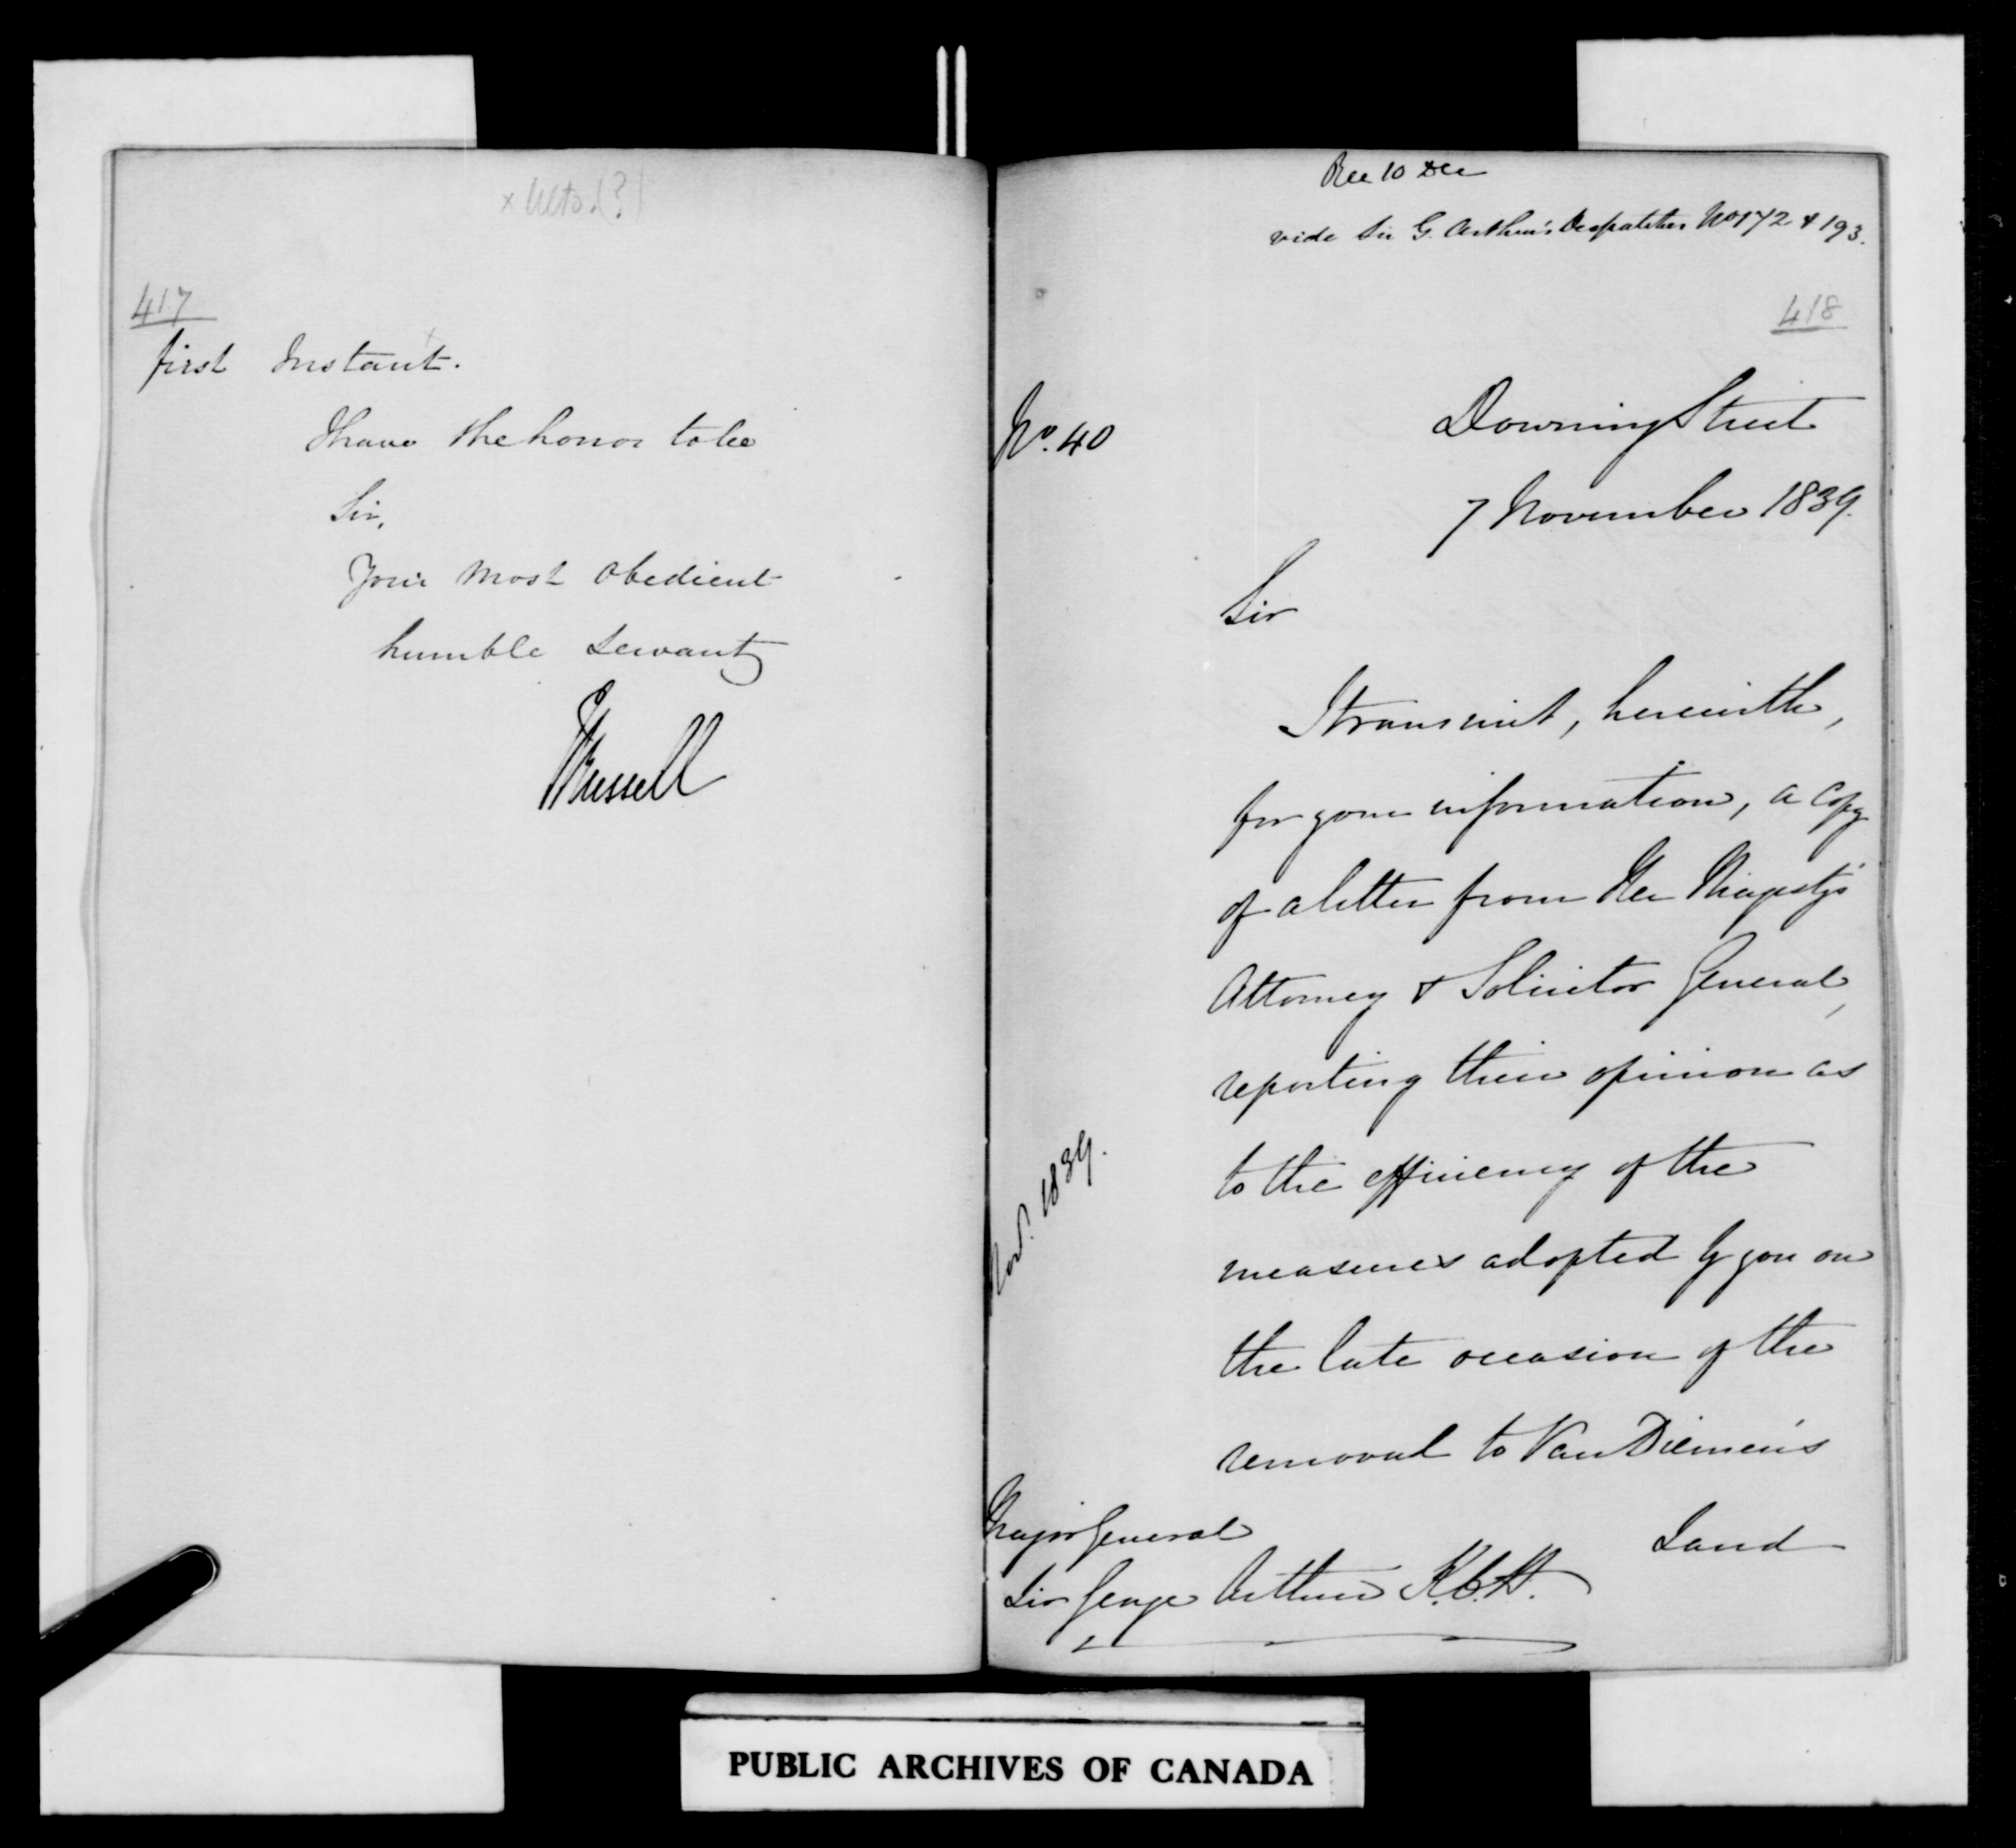 417
first Instant.
I have the honor to be
Sir,
Your most obedient
humble servant
J Russell
Rec 10 Dec
vide Sir G. Arthur's Despatches No 172 & 193.
418
No. 40
Downing Street
7 November 1839.
Sir
I transmit, herewith,
for your information, a copy
of a letter from Her Majesty's
Attorney & Solicitor General,
reporting their opinion as
to the efficiency of the
Nov. 1839.
measures adopted by you on
the late occasion of the
removal to Van Diemen's
Land
Major General
Sir George Arthur K.C.H.
PUBLIC ARCHIVES OF CANADA